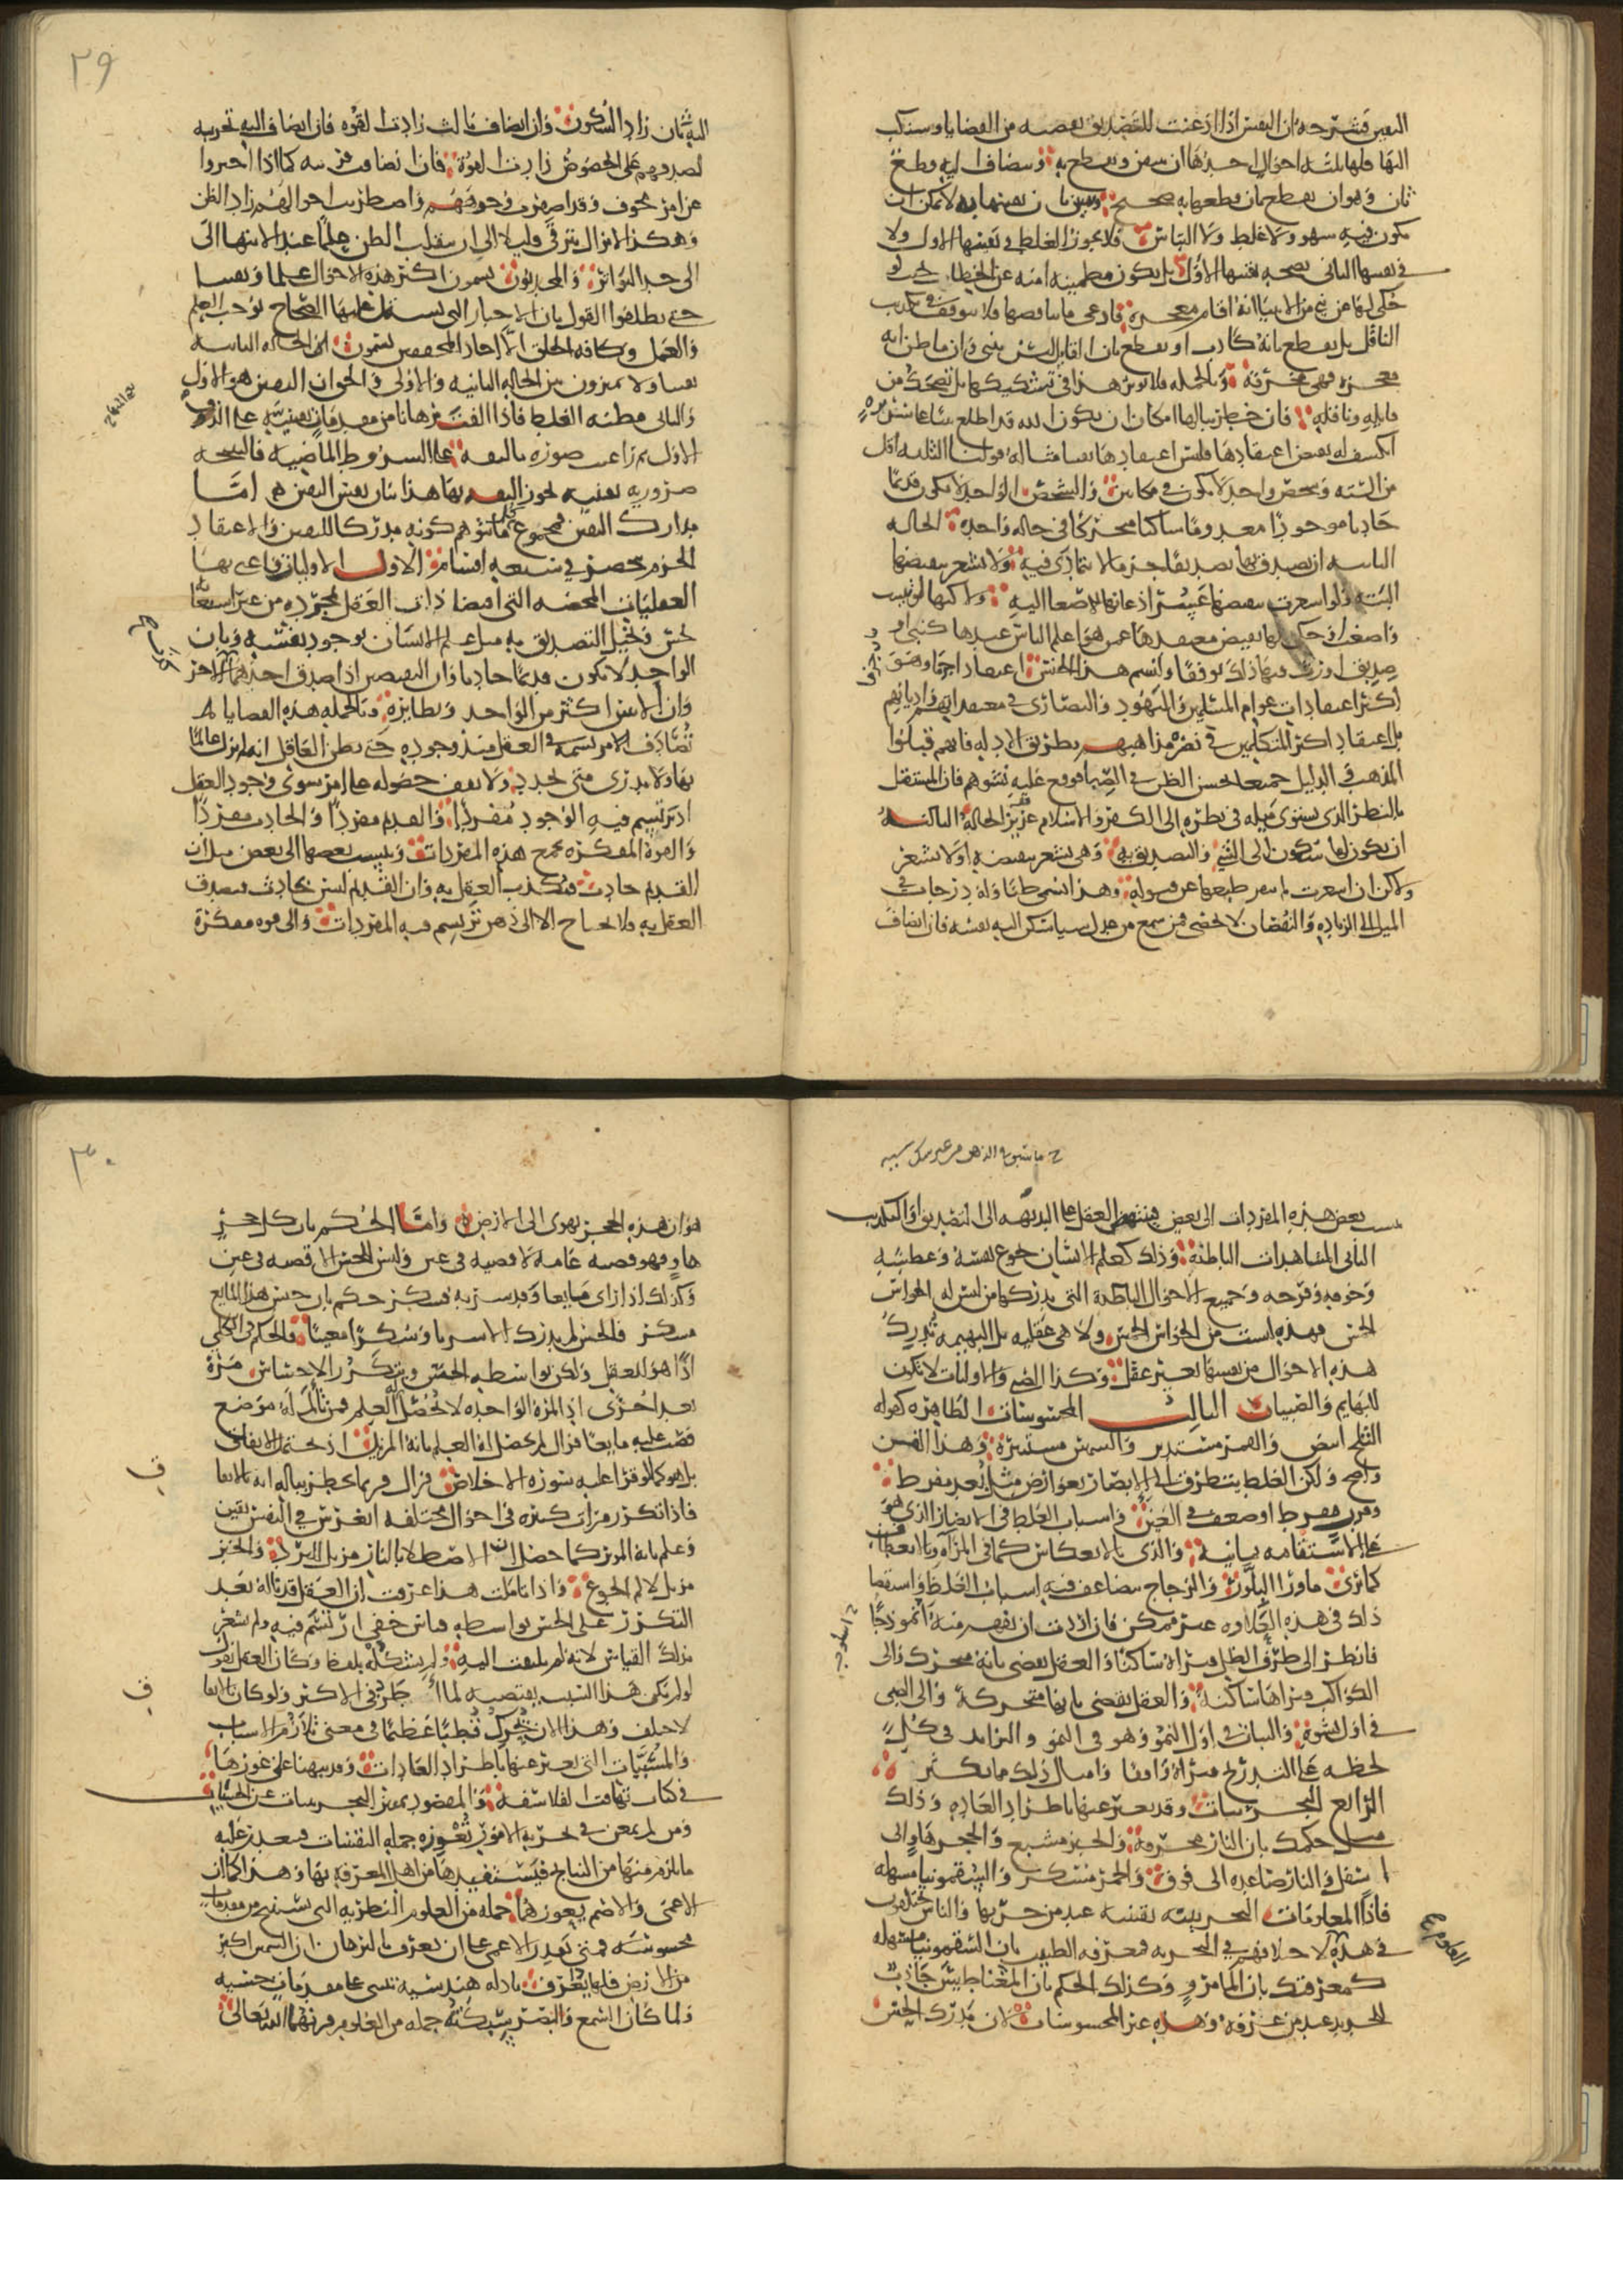 اليقين فشرحه ان النفس اذا اذعنت للتصديق بقضيه من القضايا وسكنت
اليها فلها ثلثه احوال احدها ان يتيقن ويقطع به وينضاف اليه قطع
ثان وهو ان يقطع بان قطعها به صحيح ويتيقن بان يقينها به لا يمكن ان
يكون فيه سهو ولا غلط ولا التباس فلا يجوز الغلط في يقينها الاول ولا
في يقينها الثاني بصحه يقينها الاول بل يكون مطمينه امنه عن الخطا بحيث لو
حكي لها عن نبي من الانبيا انه اقام معجزه وادعى ما يناقضها فلا يتوقف في تكذيب
الناقل بل يقطع بانه كاذب او يقطع بان القايل ليس بنبي وان ما ظن انه
معجزه فهي مخرقة وبالجمله فلا يوثر هذا في تشكيكها بل تضحك من
قايله وناقله فان خطر ببالها امكان ان يكون الله قد اطلع نبيا على سر به
انكشف له نقيض اعتقادها فليس اعتقادها يقينا مثاله قولنا الثلثه اقل
من الستة وشخص واحد لا يكون في مكانين والشخص الواحد لا يكون قديما
حادثا موجودا معدوما ساكنا متحركا في حاله واحده الحاله
الثانيه ان يصدق بها تصديقا جزما لا يتمارى فيه ولا تشعر بنقيضها
البتة ولو اشعرت بنقيضها عسر اذعانها للاصغا اليه ولاكنها لو ثبتت
واصغت وحكي لها نقيض معتقدها عن من هو اعلم الناس عندها كنبي او
صديق اورث فيها ذلك توقفا ولنسم هذا الجنس اعتقادا جزما وهو
اكثر اعتقادات عوام المسلمين واليهود والنصارى في معتقداتهم واديانهم
بل اعتقاد اكثر المتكلمين في نصره مذاهبهم بطريق الادله فانهم قبلوا
المذهب والدليل جميعا لحسن الظن في الصبا فوقع عليه نشوهم فان المستقل
بالنظر الذي يستوي ميله في نظره الى الكفر والاسلام عزيز الحالة الثالثه
ان يكون لها سكون الى الشي والتصديق به وهي تشعر بنقيضه او لا تشعر
ولاكن ان اشعرت لم ينفر طبعها عن قبوله وهذا يسمى ظنا وله درجات في
الميل الى الزياده والنقصان لا تحصى فمن سمع من عدل شيا سكن اليه نفسه فان انضاف
٢٩
اليه ثان زاد السكون وان انضاف ثالث زادت القوه فان انضاف اليه تجربه
لصدقهم على الخصوص زادت القوة فان انضافت قرينه كما اذا اخبروا
عن امر مخوف وقد اصفرت وجوههم واضطربت احوالهم زاد الظن
وهكذا لا يزال يترقى قليلا الى ان ينقلب الظن علما عند الانتها الى
الى حد التواتر والمحدثون يسمون اكثر هذه الاحوال علما ويقينا
حتى يطلقوا القول بان الاخبار التي تشتمل عليها الصحاح توجب العلم
والعمل وكافه الخلق الا احاد المحققين يسمون الحاله الثانيه
يقينا ولا يميزون بين الحاله الثانيه والاولى والحق ان اليقين هو الاول
والثاني مظنه الغلط فاذا الفت برهانا من مقدمات يقينيه على الذوق
الاول ثم راعيت صوره تاليفه على الشروط الماضيه فالنتيجه
ضروريه يقينيه يجوز الثقه بها هذا بيان نفس اليقين اما
مدارك اليقين فمجموع ما يتوهم كونه مدركا لليقين والاعتقاد
الجزم ينحصر في سبعه اقسام الاول الاوليات واعني بها
العقليات المحضه التي افضا ذات العقل بمجرده من غير استعانة
بحس وتخيل التصديق به مثل علم الانسان بوجود نفسه وبان
الواحد لا يكون قديما حادثا وان النقيضين اذا صدق احدهما كذب الاخر
وان الاثنين اكثر من الواحد ونظايره وبالجمله هذه القضايا
تصادف الامر تسمه في العقل منذ وجوده حتى يظن العاقل انه لم يزل عالما
بها ولا يدري متى تجدد ولا يقف حصوله على امر سوى وجود العقل
اذ يرتسم فيه الوجود مفردا والقديم مفردا والحادث مفردا
والقوة المفكره تجمع هذه المفردات وتنسب بعضها الى بعض مثل ان
القديم حادث فيكذب العقل به وان القديم ليس بحادث فيصدق
العقل به ولا يحتاج الا الى ذهن ترتسم فيه المفردات والى قوه مفكره
تنسب بعض هذه المفردات الى بعض فينتهض العقل على البديهه الى التصديق او التكذيب
الثاني المشاهدات الباطنة وذلك كعلم الانسان بجوع نفسه وعطشه
وخوفه وفرحه وجميع الاحوال الباطنة التي يدركها من ليس له الحواس
الخمس فهذه ليست من الحواس الخمس ولا هي عقليه بل البهيمه تدرك
هذه الاحوال من نفسها بغير عقل وكذا الصبي والاوليات لا تكون
للبهايم والصبيان الثالث المحسوسات الظاهره كقوله
الثلج ابيض والقمر مستدير والشمس مستنيره وهذا الفن
واضح ولكن الغلط يتطرق الى الابصار بعوارض مثل بعد مفرط
وقرب مفرط او ضعف في العين واسباب الغلط في الابصار الذي هو
على الاستقامه ثمانية والذي بالانعكاس كما في المرآة وبالانعطاف
كما ترى ماورا البلور والزجاج يتضاعف فيه اسباب الغلط واستقصا
ذلك في هذه العلاوه غير ممكن فان اردت ان تفهم منه انموذجا
فانظر الى طرف الظل فتراه ساكنا والعقل يقضي بانه متحرك والى
الكواكب وتراها ساكنة والعقل يقضي بانها متحركة والى الصبي
في اول نشوه والنبات في اول النمو وهو في النمو والتزايد في كل
لحظه على التدريج فتراه واقفا وامثال ذلك مما يكثر
الرابع التجريبيات وقد يعبر عنها باطراد العاده وذلك
مثل حكمك بان النار محرقه والخبز مشبع والحجر هاو الى
اسفل والنار صاعده الى فوق والخمر مسكر والسقمونيا مسهله
فاذا المعلومات التجريبيه يقينيه عند من جربها والناس يختلفون
في هذه لاختلافهم في التجربه فمعرفه الطبيب بان السقمونيا مسهله
كمعرفتك بان الما مرو وكذلك الحكم بان المغناطيس جاذب
للحديد عند من عرفه وهذه غير المحسوسات لان مدرك الحس
٣٠
هو ان هذه الحجر يهوى الى الارض واما الحكم بان كل حجر
هاو فهو قضيه عامه لا قضيه في عين وليس للحس الا قضيه في عين
وكذلك اذا راى مايعا وقد شربه فسكر حكم بان جنس هذا المايع
مسكر فالحس لم يدرك الا شربا وسكرا معينا والحكم في الكلي
اذا هو للعقل ولكن بواسطه الحس وبتكرر الاحساس مرة
بعد اخرى اذ المرة الواحده لا تحصل العلم فمن تالم له موضع
فصب عليه مايعا فزال لم يحصل له العلم بانه المزيل اذ يحتمل الاتفاق
بل هو كما لو قرا عليه سوره الاخلاص فزال فربما يخطر بباله انه بالاتفاق
فاذا تكرر مرات كثيره في احوال مختلفه انغرس في النفس يقين
وعلم بانه الموثر كما حصل ان الاصطلا بالنار مزيل للبرد والخبز
مزيل لالم الجوع واذا تاملت هذا عرفت ان العقل قد ناله بعد
التكرر على الحس بواسطه قياس خفي ارتسم فيه ولم يشعر
بذلك القياس لانه لم يلتفت اليه ولم يشكله بلفظ وكان العقل يقول
لو لم يكن هذا السبب يقتضيه لما اطرد في الاكثر ولو كان بالاتفاق
لاختلف وهذا الان يحرك قطبا عظيما في معنى تلازم الاسباب
والمسببات التي يعبر عنها باطراد العادات وقد نبهنا على غورها
في كتاب تهافت الفلاسفه والمقصود تمييز التجريبيات عن الحسيات
ومن لم يمعن في تجربه الامور تعوزه جمله اليقينيات فيتعذر عليه
ما يلزم منها من النتايج فيستفيدها من اهل المعرفه بها وهذا كما ان
الاعمى والاصم يعوزهما جمله من العلوم النظريه التي تستنتج من مقدمات
محسوسه فمتى يقدر الاعمى على ان يعرف بالبرهان ان الشمس اكبر
من الارض فانها يعرف بادله هندسيه تبتنى على مقدمات حسيه
ولما كان السمع والبصر شبكة جمله من العلوم قرنهما الله تعالى